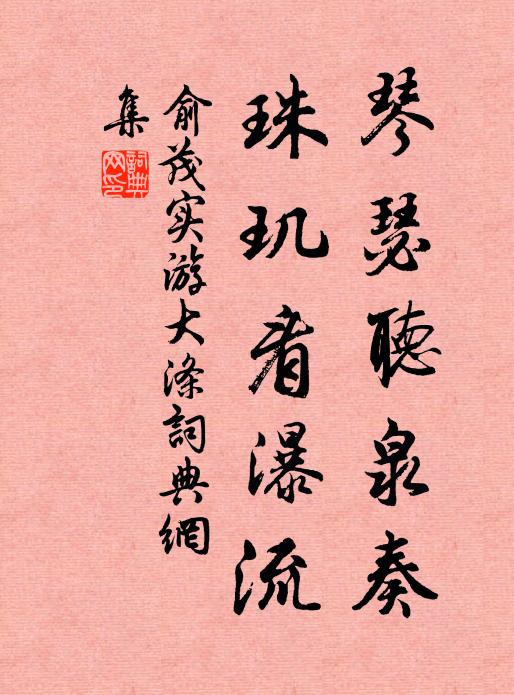 琴瑟聽泉奏
珠玑看瀑流
俞茂实游大滌詞典網
集
詞典網印